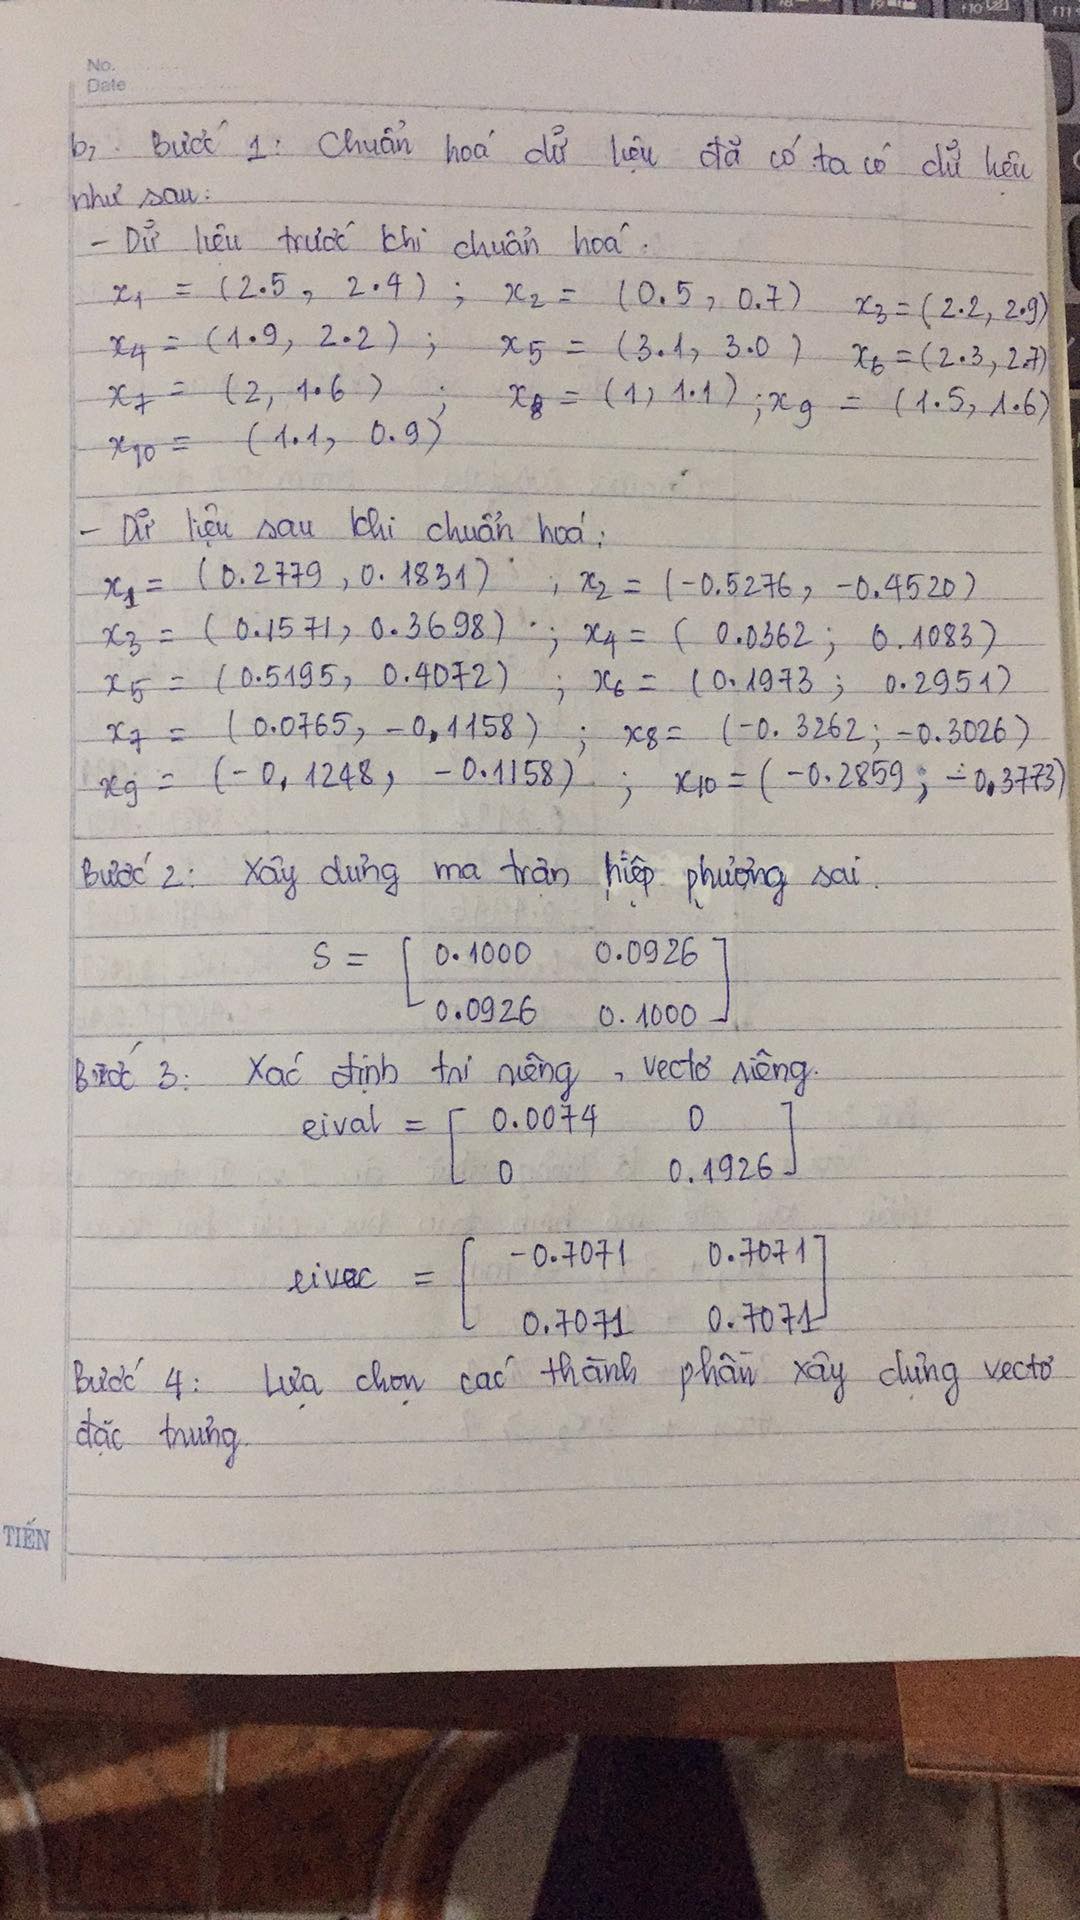 No.
Date
b, Bước 1: Chuẩn hoá dữ liệu đã có ta có dữ liệu
như sau:
- Dữ liệu trước khi chuẩn hoá.
x1 = (2.5, 2.4) ; x2 = (0.5, 0.7) x3=(2.2, 2.9)
x4 = (1.9, 2.2) ; x5 = (3.1, 3.0) x6=(2.3, 2.7)
x7 = (2, 1.6) ; x8 = (1, 1.1) ; x9 = (1.5, 1.6)
x10 = (1.1, 0.9)
- Dữ liệu sau khi chuẩn hoá:
x1 = (0.2779, 0.1831) ; x2 = (-0.5276, -0.4520)
x3 = (0.1571, 0.3698) ; x4 = (0.0362; 0.1083)
x5 = (0.5195, 0.4072) ; x6 = (0.1973; 0.2951)
x7 = (0.0765, -0,1158) ; x8 = (-0.3262; -0.3026)
x9 = (-0,1248, -0.1158) ; x10 = (-0.2859; -0.3773)
Bước 2: Xây dựng ma trận hiệp phương sai.
S = [ 0.1000 0.0926 ]
0.0926 0.1000
Bước 3: Xác định trị riêng, vectơ riêng.
eival = [ 0.0074 0 ]
0 0.1926
eivec = [ -0.7071 0.7071 ]
0.7071 0.7071
Bước 4: Lựa chọn các thành phần xây dựng vectơ
đặc trưng.
TIẾN
f10
f11